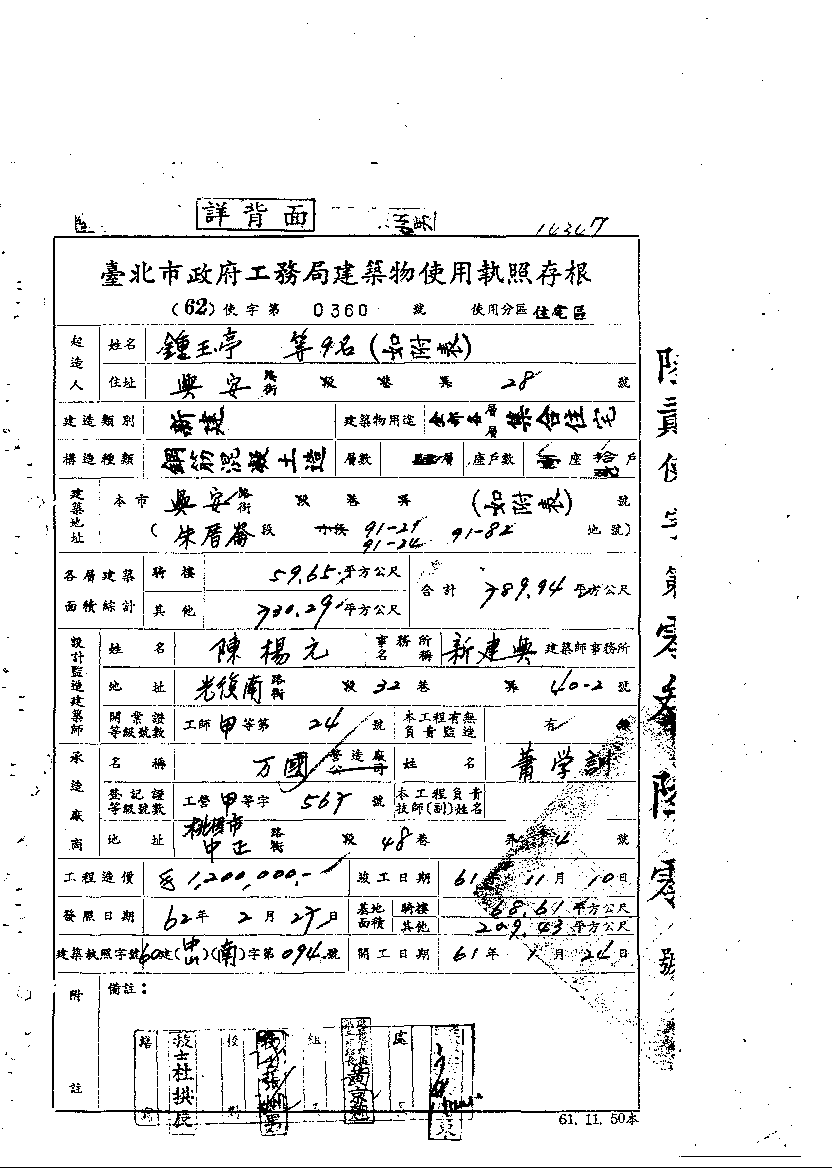 詳背面
14347
臺北市政府工務局建築物使用執照存根
(62)使字第 0360 號 使用分區 住宅區
起造人 姓名 鍾玉亭 等9名(如附表)
住址 興安 路街 段 巷 弄 28 號
建造類別 新建 建築物用途 層層 集合住宅
構造種類 鋼筋混凝土造 層數 層 座戶數 座 戶
建築地址 本市 興安 路街 段 巷 弄 (如附表) 號
(朱厝崙 段 小段 91-21 91-24 91-82 地號)
各層建築面積綜計 騎樓 59.65 平方公尺 合計 789.94 平方公尺
其他 730.29 平方公尺
設計監造建築師 姓名 陳楊元 事務所名稱 新建興 建築師事務所
地址 光復南 路街 段 32 巷 弄 40-2 號
開業證等級號數 工師 甲 等第 24 號 本工程有無負責監造 有 無
承造廠商 名稱 万國 營造廠公司 姓名 蕭学訓
登記證等級號數 工營 甲 等字 567 號 本工程負責技師(副)姓名
地址 桃園市 中正 路街 段 48 巷 弄 4 號
工程造價 1,200,000,- 竣工日期 61年 11月 10日
發照日期 62年 2月 27日 基地面積 騎樓 68.61 平方公尺
其他 209.43 平方公尺
建築執照字號 60建( )(南)字第 094 號 開工日期 61年 1月 24日
附註 備註:
技士杜拱辰
黃京
61. 11. 50本
陸貳使字第零叁陸零號